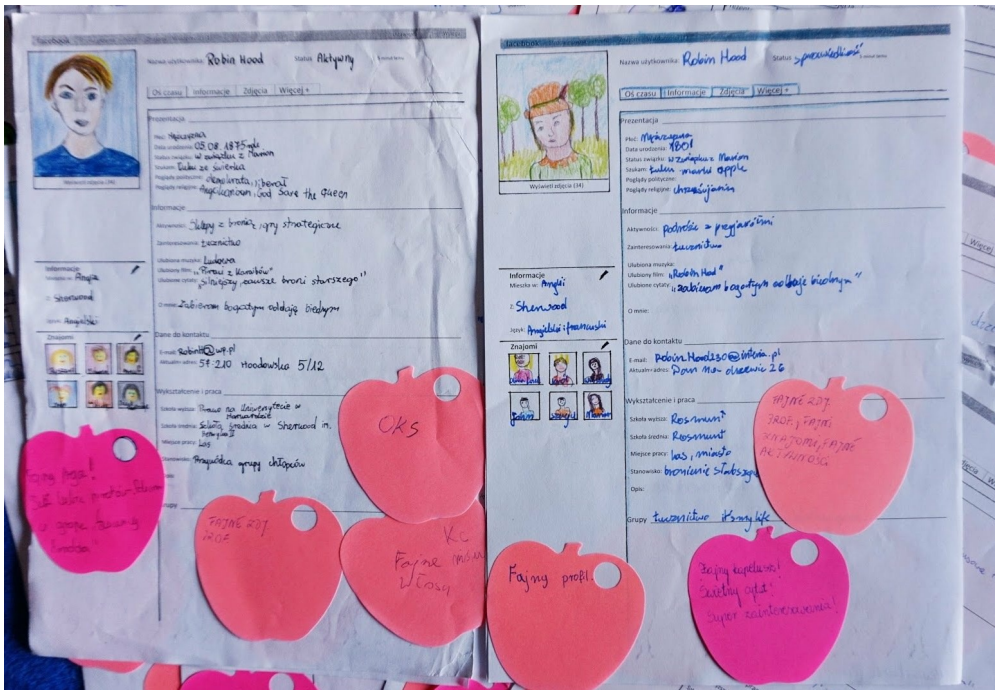 facebook
Nazwa użytkownika: Robin Hood Status Aktywny
Oś czasu Informacje Zdjęcia Więcej +
Wyświetl zdjęcia (34)
Prezentacja
Płeć: Mężczyzna
Data urodzenia: 05.08.1875
Status związku: w związku z Marion
Szukam: Łuku ze
Poglądy polityczne: demokrata, liberał
Poglądy religijne: God Save the Queen
Informacje
Aktywności: Sklepy z bronią, gry strategiczne
Zainteresowania: Łucznictwo
Ulubiona muzyka: Ludowa
Ulubiony film: "Piraci z Karaibów"
Ulubione cytaty: broni starszego"
O mnie: Zabieram bogatym oddaję biednym
Informacje
Mieszka w: Anglia
Z: Sherwood
Język: Angielski
Znajomi
Dane do kontaktu
E-mail: RobinH@wp.pl
Aktualny adres: 57-210 Hoodowska 5/12
Wykształcenie i praca
Szkoła wyższa: Prawo na Uniwersytecie w
Szkoła średnia: Szkoła średnia w Sherwood im.
Miejsce pracy: Las
Stanowisko: Przywódca grupy chłopów
Grupy
OKS
FAJNE ZDJ.
PROF.
Kc
Fajne
włosy
facebook
Nazwa użytkownika: Robin Hood Status "sprawiedliwość"
Oś czasu Informacje Zdjęcia Więcej +
Wyświetl zdjęcia (34)
Prezentacja
Płeć: Mężczyzna
Data urodzenia: 1801
Status związku: w związku z Marion
Szukam: Łuku marki apple
Poglądy polityczne:
Poglądy religijne: chrześcijanin
Informacje
Aktywności: Podróże z przyjaciółmi
Zainteresowania: Łucznictwo
Ulubiona muzyka:
Ulubiony film: "Robin Hod"
Ulubione cytaty: "zabieram bogatym oddaje biednym"
O mnie:
Informacje
Mieszka w: Anglii
Z: Sherwood
Język: Angielski i francuski
Znajomi
Dane do kontaktu
E-mail: RobinHood230@interia.pl
Aktualny adres: Dom na drzewie 26
Wykształcenie i praca
Szkoła wyższa: Rosmunt
Szkoła średnia: Rosmunt
Miejsce pracy: las, miasto
Stanowisko: bronienie słabszych
Opis:
Grupy Łucznictwo it's my life
FAJNE ZDJ.
PROF., FAJNI
ZNAJOMI, FAJNE
AKTYWNOŚCI
Fajny profil.
Fajny kapelusz!
Świetny cytat!
Super zainteresowania!